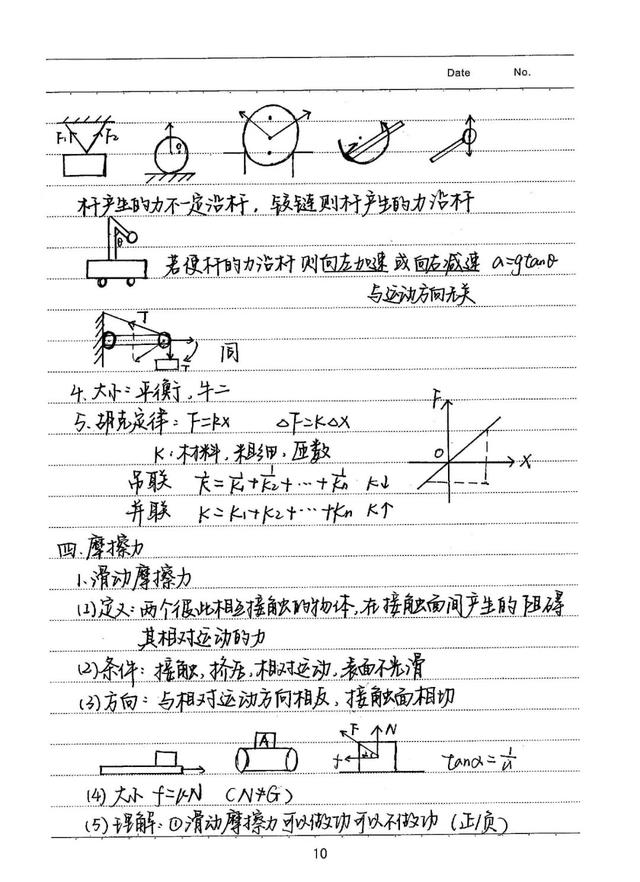 Date No.
F₁ F₂ θ
杆产生的力不一定沿杆，铰链则杆产生的力沿杆
θ
若使杆的力沿杆则向左加速或向右减速 a=gtanθ
与运动方向无关
T
T 同
4、大小：平衡，牛二
5、胡克定律：F=kx △F=k△x
F
O X
K：材料，粗细，匝数
串联 1/k=1/k₁+1/k₂+…+1/kn K↓
并联 K=K₁+K₂+…+Kn K↑
四、摩擦力
1、滑动摩擦力
(1)定义：两个彼此相互接触的物体，在接触面间产生的阻碍
其相对运动的力
(2)条件：接触，挤压，相对运动，表面不光滑
(3)方向：与相对运动方向相反，接触面相切
A F N f α tanα=1/μ
(4)大小 f=μN （N≠G）
(5)理解：①滑动摩擦力可以做功可以不做功（正/负）
10